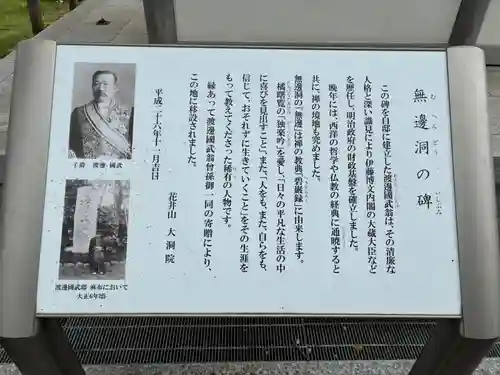 無邊洞の碑
むへんどう
いしぶみ
この碑を自邸に建立した渡邊國武翁は、その清廉な
人格と深い識見により伊藤博文内閣の大蔵大臣など
を歴任し、明治政府の財政基盤を確立しました。
晩年には、西洋の哲学や仏教の経典に通暁すると
共に、禅の境地も究めました。
無邊洞の「無邊」は禅の教典『碧巌録』に由来します。
橘曙覧の「独楽吟」を愛し、「日々の平凡な生活の中
に喜びを見出すこと」また、「人をも、また、自らをも、
信じて、おそれずに生きていくこと」をその生涯を
もって教えてくださった稀有の人物です。
縁あって渡邊國武翁曾孫御一同の寄贈により、
この地に移設されました。
平成二十六年十一月吉日
花井山 大洞院
子爵 渡邊 國武
渡邊國武邸 麻布において
大正6年頃